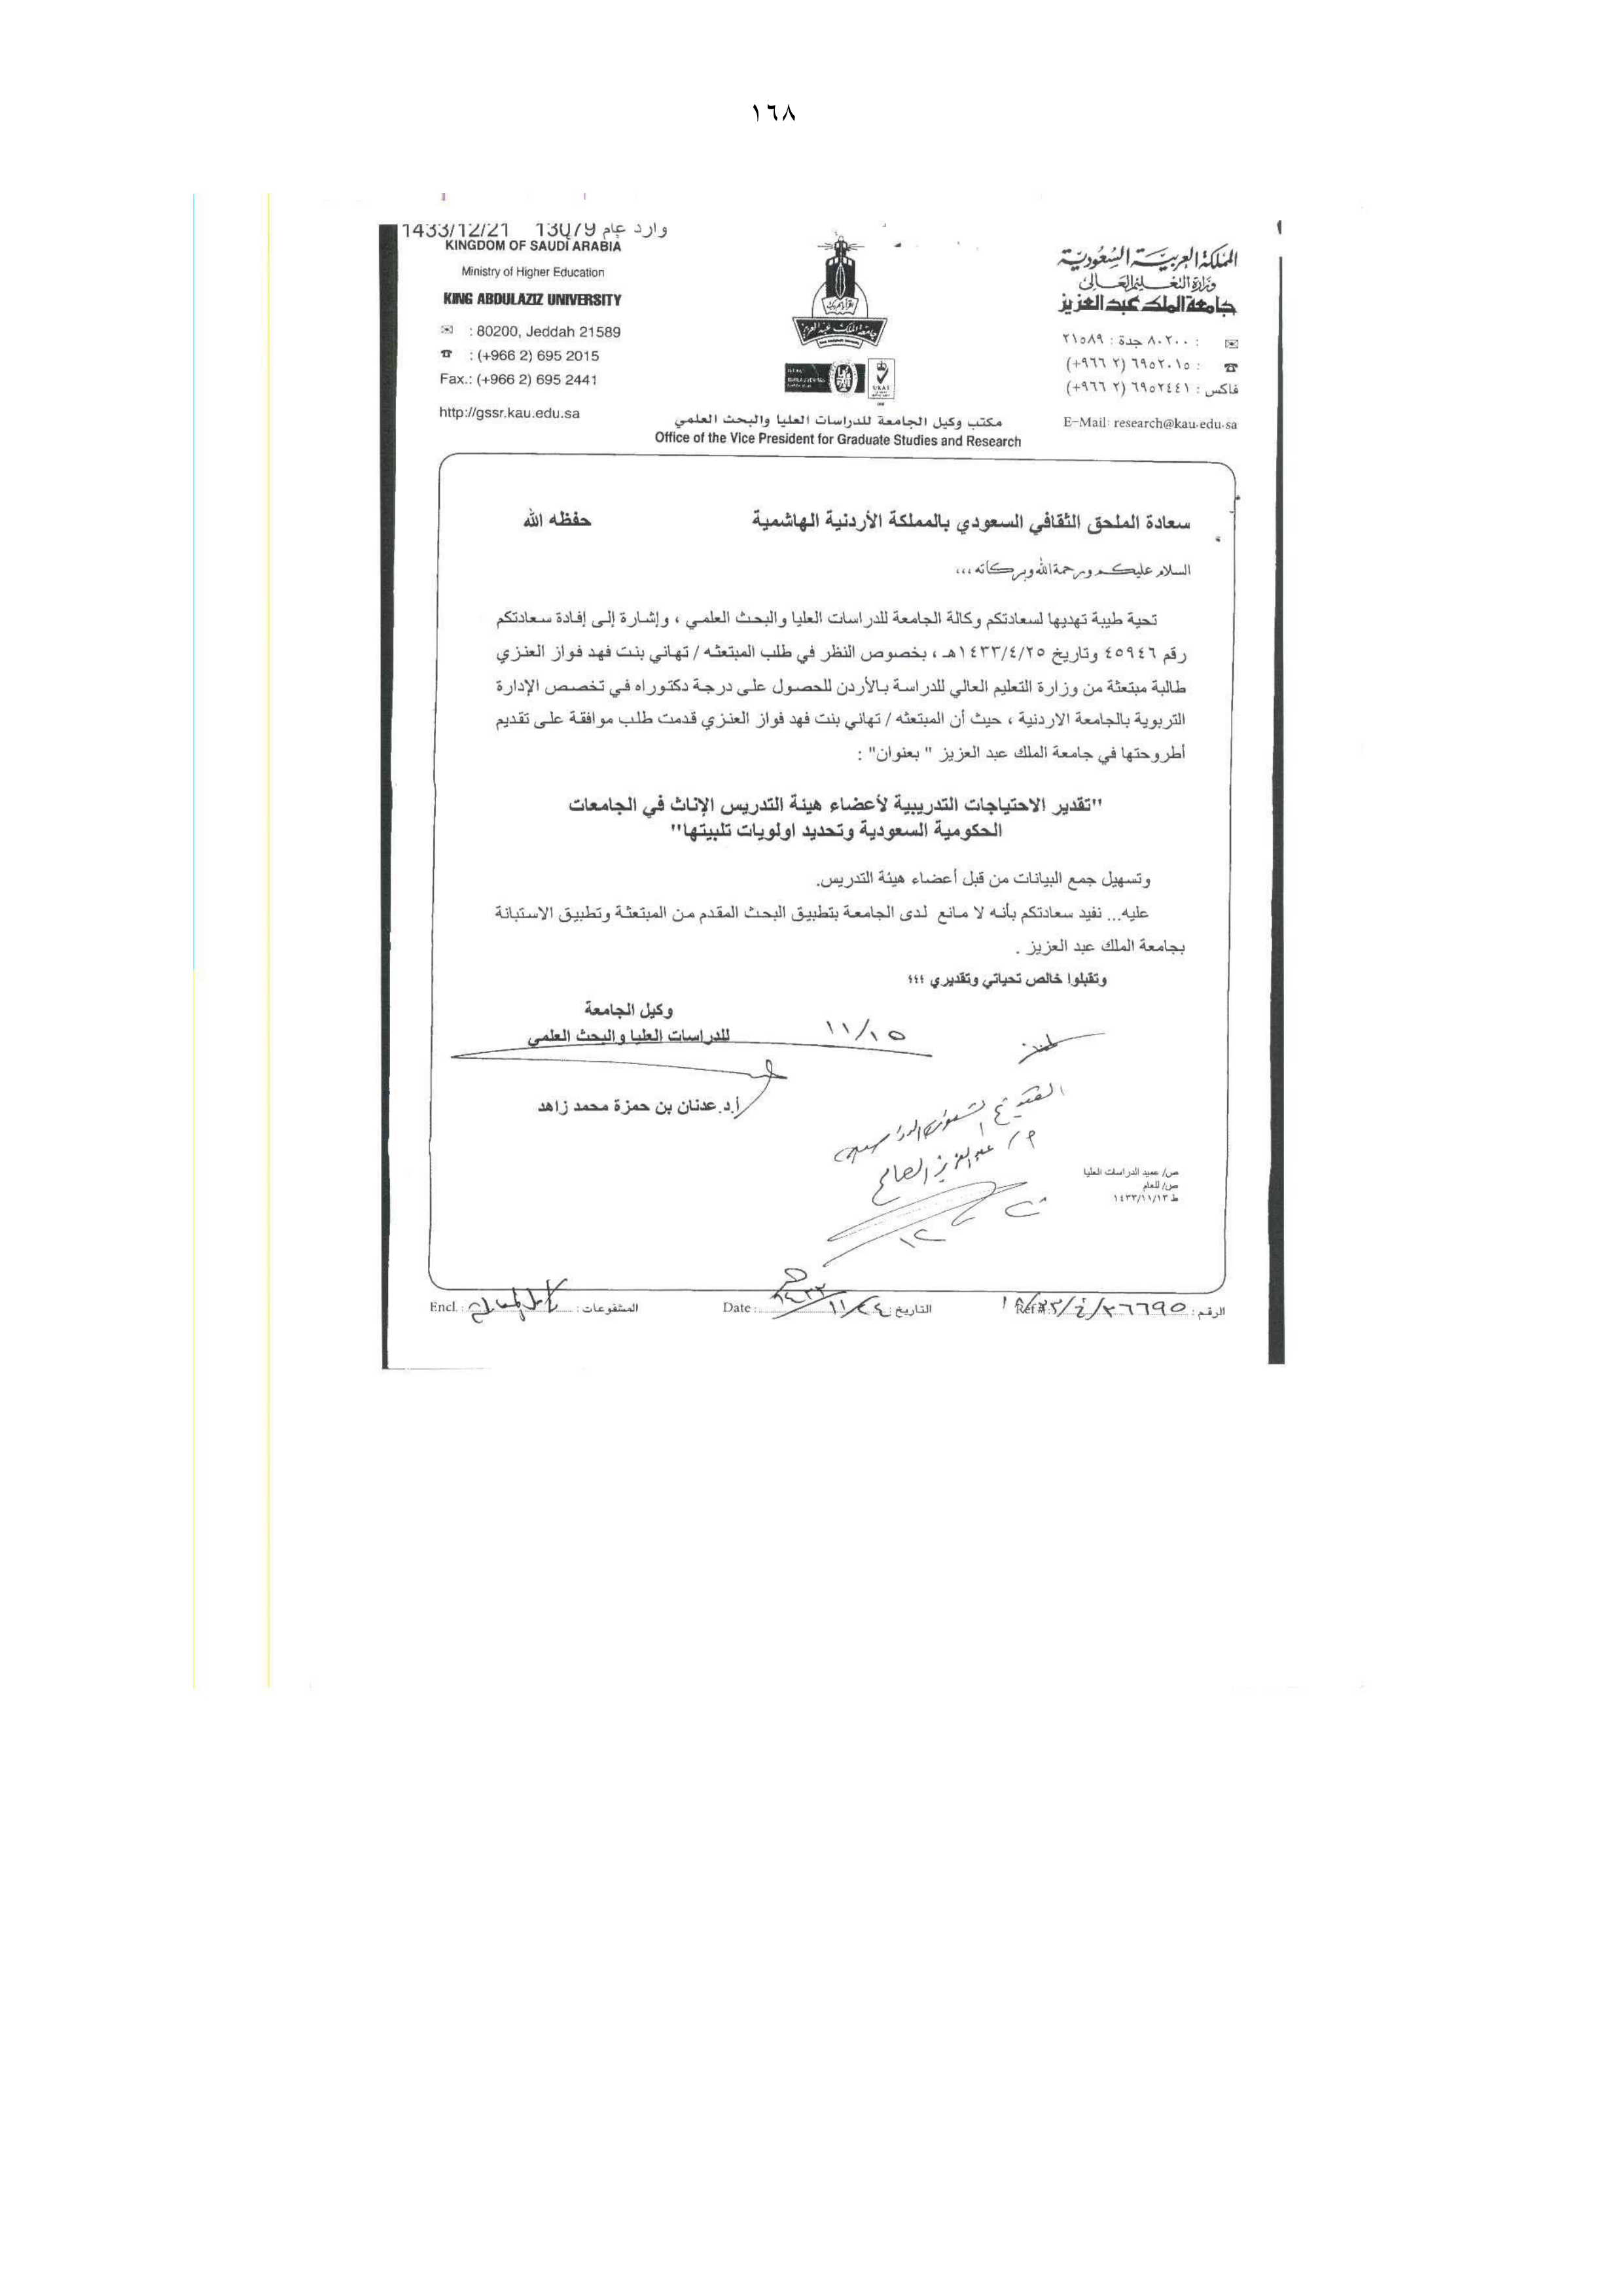 ١٦٨
وارد عام 13079 1433/12/21
KINGDOM OF SAUDI ARABIA
Ministry of Higher Education
KING ABDULAZIZ UNIVERSITY
: 80200, Jeddah 21589
: (+966 2) 695 2015
Fax.: (+966 2) 695 2441
http://gssr.kau.edu.sa
المملكة العربية السعودية
وزارة التعليم العالي
جامعة الملك عبد العزيز
: ٨٠٢٠٠ جدة : ٢١٥٨٩
: ٦٩٥٢٠١٥ (٢ ٩٦٦+)
فاكس : ٦٩٥٢٤٤١ (٢ ٩٦٦+)
E-Mail: research@kau.edu.sa
جامعة الملك عبد العزيز
UKAS
مكتب وكيل الجامعة للدراسات العليا والبحث العلمي
Office of the Vice President for Graduate Studies and Research
سعادة الملحق الثقافي السعودي بالمملكة الأردنية الهاشمية حفظه الله
السلام عليكم ورحمة الله وبركاته ،،،
تحية طيبة تهديها لسعادتكم وكالة الجامعة للدراسات العليا والبحث العلمي ، وإشارة إلى إفادة سعادتكم
رقم ٤٥٩٤٦ وتاريخ ١٤٣٣/٤/٢٥هـ ، بخصوص النظر في طلب المبتعثه / تهاني بنت فهد فواز العنزي
طالبة مبتعثة من وزارة التعليم العالي للدراسة بالأردن للحصول على درجة دكتوراه في تخصص الإدارة
التربوية بالجامعة الاردنية ، حيث أن المبتعثه / تهاني بنت فهد فواز العنزي قدمت طلب موافقة على تقديم
أطروحتها في جامعة الملك عبد العزيز " بعنوان" :
"تقدير الاحتياجات التدريبية لأعضاء هيئة التدريس الإناث في الجامعات
الحكومية السعودية وتحديد اولويات تلبيتها"
وتسهيل جمع البيانات من قبل أعضاء هيئة التدريس.
عليه... نفيد سعادتكم بأنه لا مانع لدى الجامعة بتطبيق البحث المقدم من المبتعثة وتطبيق الاستبانة
بجامعة الملك عبد العزيز .
وتقبلوا خالص تحياتي وتقديري ،،،
وكيل الجامعة
للدراسات العليا والبحث العلمي
١١/١٥
أ.د. عدنان بن حمزة محمد زاهد
م / عبدالعزيز الصالح
ص/ عميد الدراسات العليا
ص/ للعام
ط ١٤٣٣/١١/١٣
الرقم: Ref #:
التاريخ: Date:
المشفوعات: Encl.: